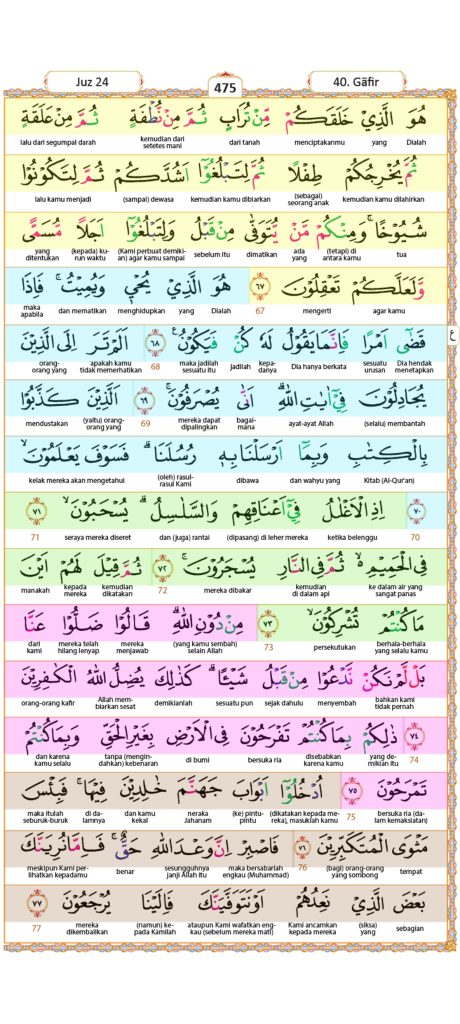 Juz 24
475
40. Gāfir
هُوَ الَّذِيْ خَلَقَكُمْ مِّنْ تُرَابٍ ثُمَّ مِنْ نُّطْفَةٍ ثُمَّ مِنْ عَلَقَةٍ
Dialah yang menciptakanmu dari tanah kemudian dari setetes mani lalu dari segumpal darah
ثُمَّ يُخْرِجُكُمْ طِفْلًا ثُمَّ لِتَبْلُغُوْٓا اَشُدَّكُمْ ثُمَّ لِتَكُوْنُوْا
kemudian kamu dilahirkan (sebagai) seorang anak kemudian kamu dibiarkan (sampai) dewasa lalu kamu menjadi
شُيُوْخًا ۚ وَمِنْكُمْ مَّنْ يُّتَوَفّٰى مِنْ قَبْلُ وَلِتَبْلُغُوْٓا اَجَلًا مُّسَمًّى
tua (tetapi) di antara kamu ada yang dimatikan sebelum itu (Kami perbuat demikian) agar kamu sampai (kepada) kurun waktu yang ditentukan
وَّلَعَلَّكُمْ تَعْقِلُوْنَ ٦٧ هُوَ الَّذِيْ يُحْيٖ وَيُمِيْتُ ۚ فَاِذَا
agar kamu mengerti 67 Dialah yang menghidupkan dan mematikan maka apabila
قَضٰٓى اَمْرًا فَاِنَّمَا يَقُوْلُ لَهٗ كُنْ فَيَكُوْنُ ۚ ٦٨ اَلَمْ تَرَ اِلَى الَّذِيْنَ
Dia hendak menetapkan sesuatu urusan Dia hanya berkata kepadanya Jadilah maka jadilah sesuatu itu 68 apakah kamu tidak memerhatikan orang-orang yang
يُجَادِلُوْنَ فِيْٓ اٰيٰتِ اللّٰهِ ۗ اَنّٰى يُصْرَفُوْنَ ۚ ٦٩ اَلَّذِيْنَ كَذَّبُوْا
(selalu) membantah ayat-ayat Allah bagaimana mereka dapat dipalingkan 69 (yaitu) orang-orang yang mendustakan
بِالْكِتٰبِ وَبِمَآ اَرْسَلْنَا بِهٖ رُسُلَنَا ۗ فَسَوْفَ يَعْلَمُوْنَ ۙ
Kitab (Al-Qur'an) dan wahyu yang dibawa (oleh) rasul-rasul Kami kelak mereka akan mengetahui
٧٠ اِذِ الْاَغْلٰلُ فِيْٓ اَعْنَاقِهِمْ وَالسَّلٰسِلُ ۗ يُسْحَبُوْنَ ۙ ٧١
70 ketika belenggu (dipasang) di leher mereka dan (juga) rantai seraya mereka diseret 71
فِى الْحَمِيْمِ ەۙ ثُمَّ فِى النَّارِ يُسْجَرُوْنَ ۚ ٧٢ ثُمَّ قِيْلَ لَهُمْ اَيْنَ
ke dalam air yang sangat panas kemudian di dalam api mereka dibakar 72 kemudian dikatakan kepada mereka manakah
مَا كُنْتُمْ تُشْرِكُوْنَ ۙ ٧٣ مِنْ دُوْنِ اللّٰهِ ۗ قَالُوْا ضَلُّوْا عَنَّا
berhala-berhala yang selalu kamu persekutukan 73 (yang kamu sembah) selain Allah mereka menjawab mereka telah hilang lenyap dari kami
بَلْ لَّمْ نَكُنْ نَّدْعُوْا مِنْ قَبْلُ شَيْـًٔا ۗ كَذٰلِكَ يُضِلُّ اللّٰهُ الْكٰفِرِيْنَ
bahkan kami tidak pernah menyembah sejak dahulu sesuatu pun demikianlah Allah membiarkan sesat orang-orang kafir
٧٤ ذٰلِكُمْ بِمَا كُنْتُمْ تَفْرَحُوْنَ فِى الْاَرْضِ بِغَيْرِ الْحَقِّ وَبِمَا كُنْتُمْ
74 yang demikian itu disebabkan karena kamu bersuka ria di bumi tanpa (mengindahkan) kebenaran dan karena kamu selalu
تَمْرَحُوْنَ ۚ ٧٥ اُدْخُلُوْٓا اَبْوَابَ جَهَنَّمَ خٰلِدِيْنَ فِيْهَا ۚ فَبِئْسَ
bersuka ria (dalam kemaksiatan) 75 (dikatakan kepada mereka), masuklah kamu (ke) pintu-pintu neraka Jahanam dan kamu kekal di dalamnya maka itulah seburuk-buruk
مَثْوَى الْمُتَكَبِّرِيْنَ ٧٦ فَاصْبِرْ اِنَّ وَعْدَ اللّٰهِ حَقٌّ ۚ فَاِمَّا نُرِيَنَّكَ
tempat (bagi) orang-orang yang sombong 76 maka bersabarlah engkau (Muhammad) sesungguhnya Janji Allah itu benar meskipun Kami perlihatkan kepadamu
بَعْضَ الَّذِيْ نَعِدُهُمْ اَوْ نَتَوَفَّيَنَّكَ فَاِلَيْنَا يُرْجَعُوْنَ ٧٧
sebagian (siksa) yang Kami ancamkan kepada mereka ataupun Kami wafatkan engkau (sebelum mereka mati) (namun) kepada Kamilah mereka dikembalikan 77
ع